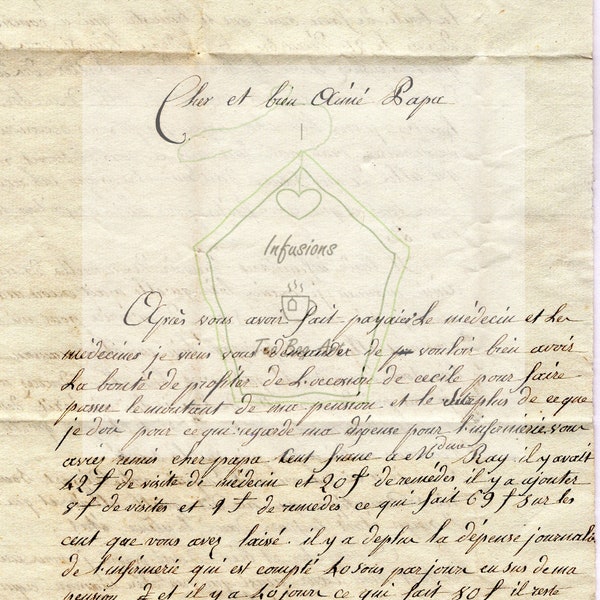 Cher et bien Aimé Papa
Infusions
Après vous avoir fait payaier le médecin et les
médecines je viens vous demander de vouloir bien avoir
La bonté de profiter de L'occasion de cecile pour faire
passer le montant de ma pension et le surplus de ce que
je doit pour ce qui regarde ma depense pour l'infirmerie vous
aviès remis cher papa Cent franc a Mdme Ray il y avait
42 f de visite de médecin et 20 f de remèdes il y a ajouter
8 f de visites et 1 f de remedes ce qui fait 69 f sur les
cent que vous avez laissé. il y a deplus la dépense journali
de l'infirmerie qui est compté 40 sous par jour en sus de ma
pension, et il y a 40 jour ce qui fait 80 f il reste